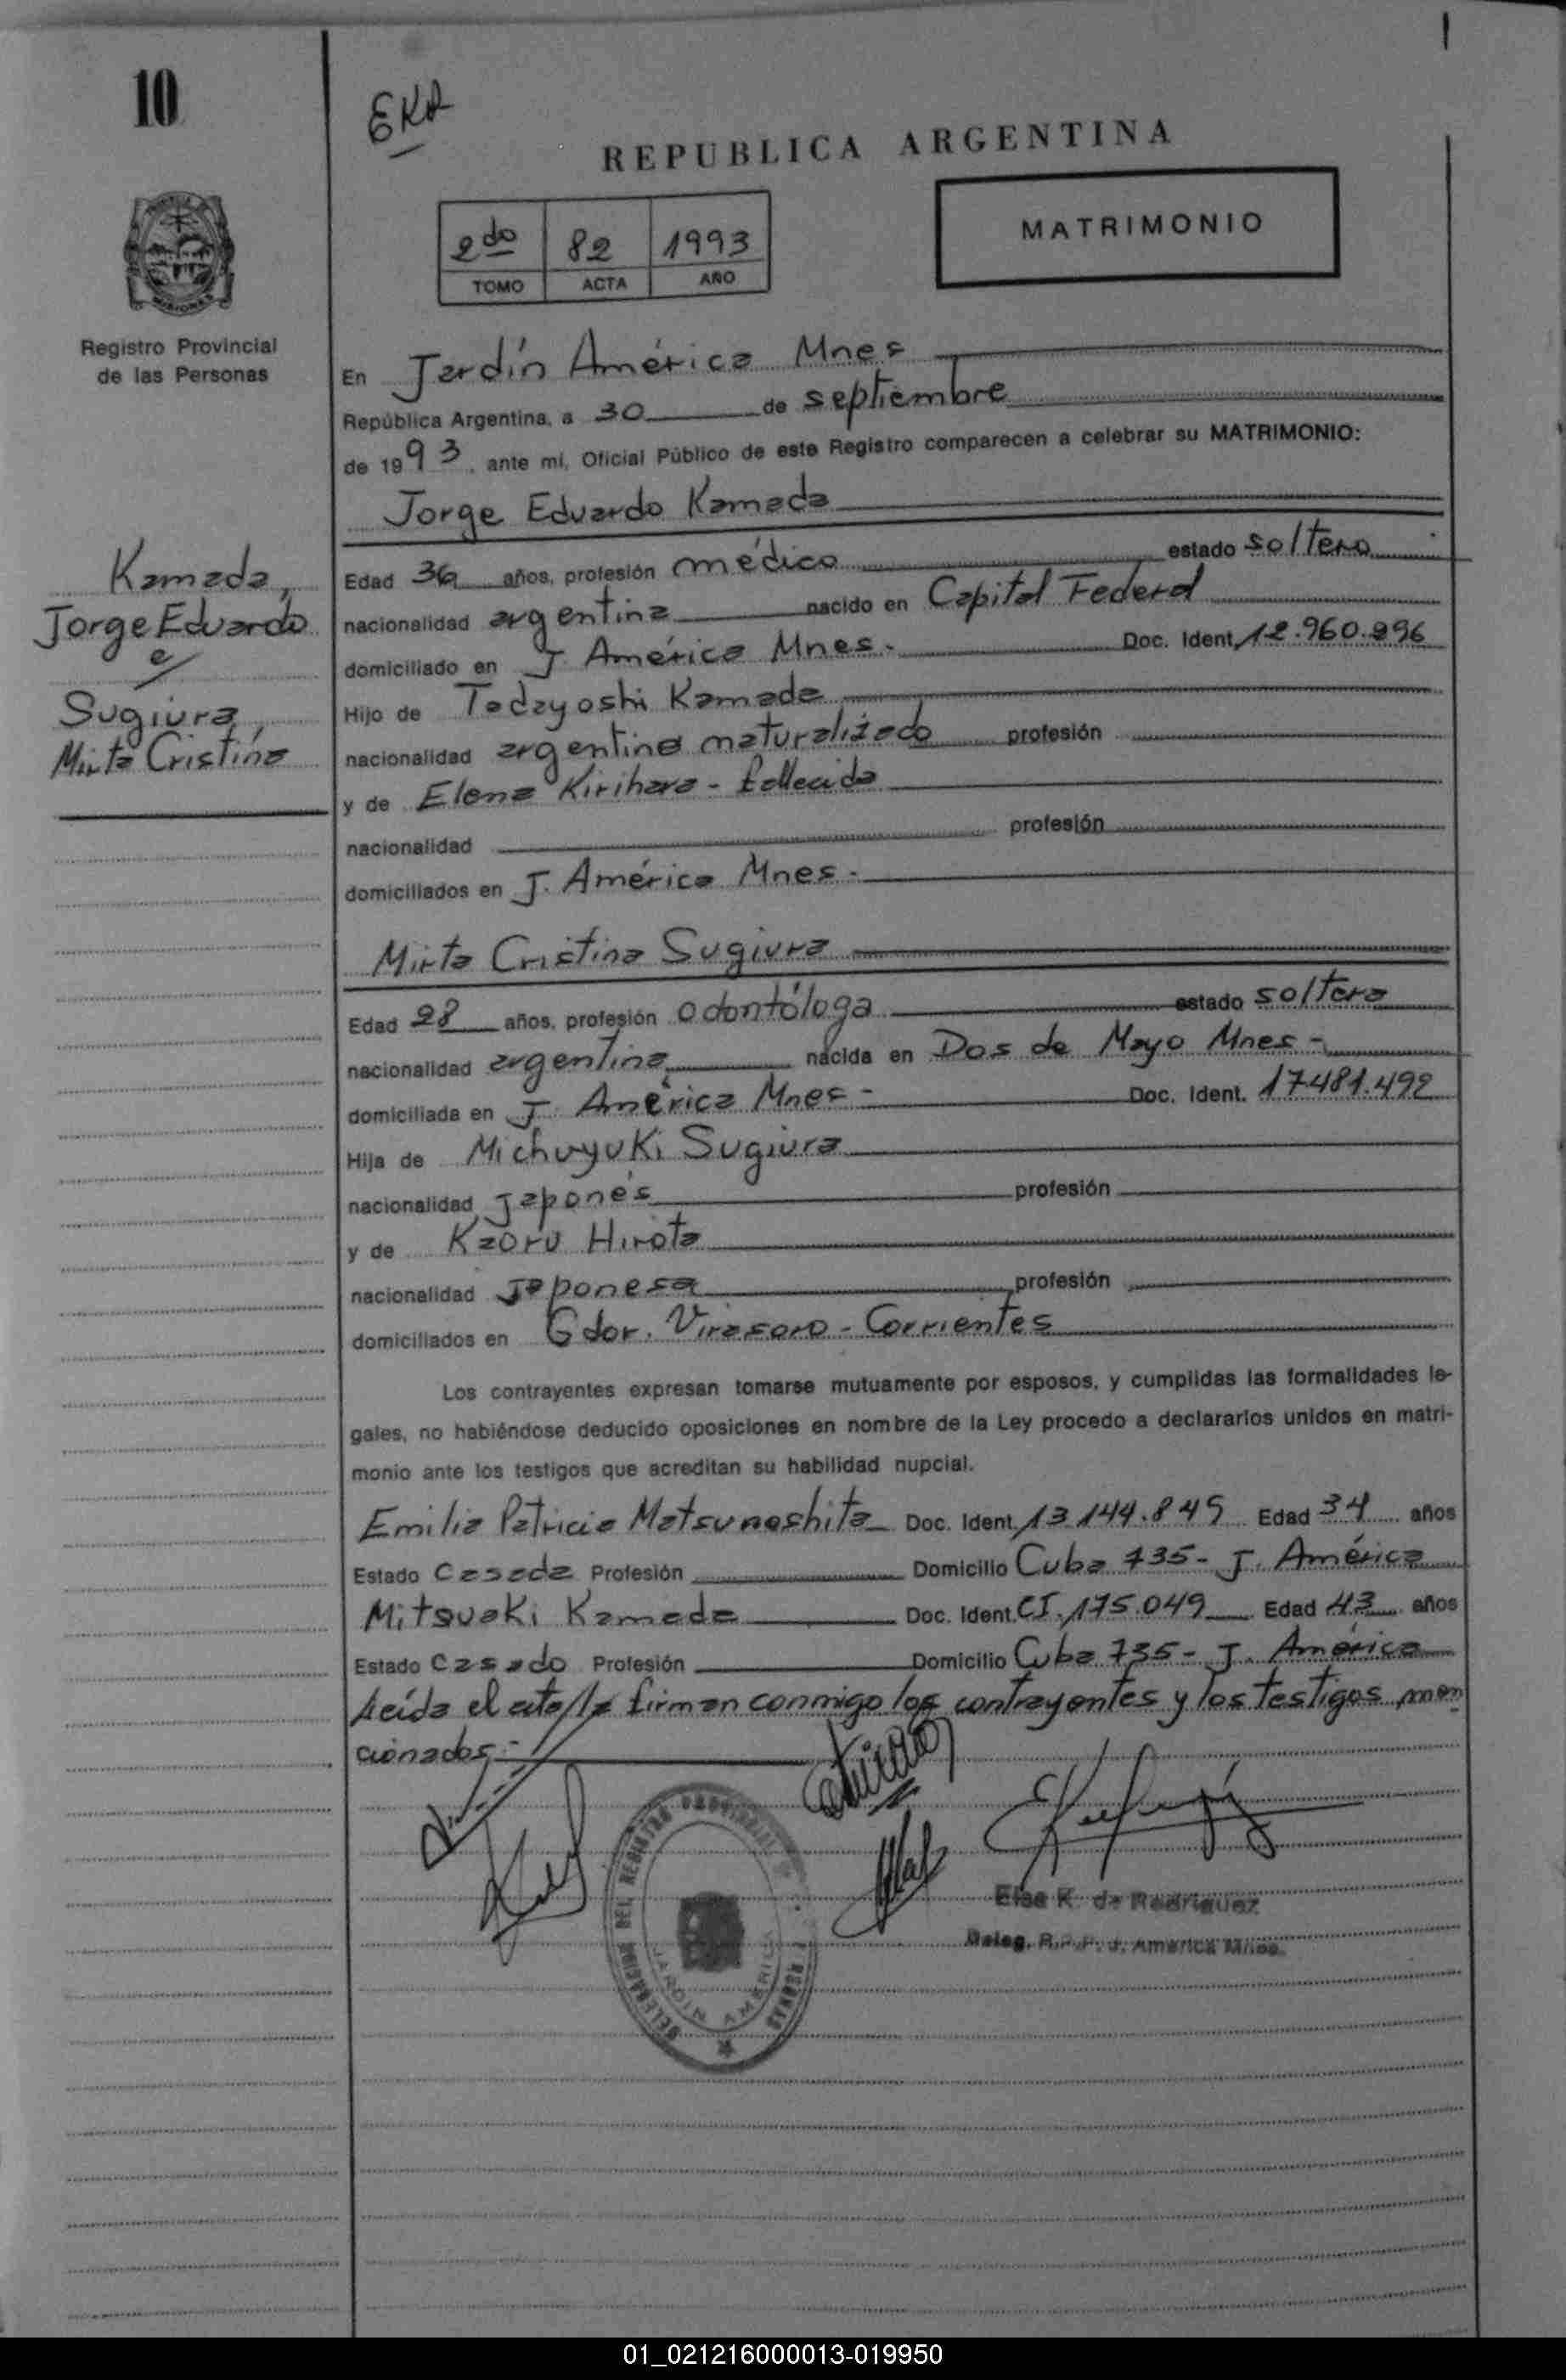 10
EKR
REPUBLICA ARGENTINA
2do 82 1993
TOMO ACTA AÑO
MATRIMONIO
Registro Provincial
de las Personas
Kamada,
Jorge Eduardo
c/
Sugiura,
Mirta Cristina
En Jardín América Mnes
República Argentina, a 30 de septiembre
de 1993, ante mí, Oficial Público de este Registro comparecen a celebrar su MATRIMONIO:
Jorge Eduardo Kamada
Edad 36 años, profesión médico estado soltero
nacionalidad argentina nacido en Capital Federal
domiciliado en J. América Mnes. Doc. Ident. 12.960.996
Hijo de Tadayoshi Kamada
nacionalidad argentino naturalizado profesión
y de Elena Kirihara - fallecida
nacionalidad profesión
domiciliados en J. América Mnes.
Mirta Cristina Sugiura
Edad 28 años, profesión odontóloga estado soltera
nacionalidad argentina nacida en Dos de Mayo Mnes -
domiciliada en J. América Mnes - Doc. Ident. 17481.492
Hija de Michuyuki Sugiura
nacionalidad japonés profesión
y de Kaoru Hirota
nacionalidad japonesa profesión
domiciliados en Gdor. Virasoro - Corrientes
Los contrayentes expresan tomarse mutuamente por esposos, y cumplidas las formalidades le-
gales, no habiéndose deducido oposiciones en nombre de la Ley procedo a declararlos unidos en matri-
monio ante los testigos que acreditan su habilidad nupcial.
Emilia Patricia Matsunashita Doc. Ident. 13.144.845 Edad 34 años
Estado Casada Profesión Domicilio Cuba 735 - J. América
Mitsuaki Kamada Doc. Ident. CI. 175.049 Edad 43 años
Estado Casado Profesión Domicilio Cuba 735 - J. América
Leída el acta, la firman conmigo los contrayentes y los testigos men
cionados.-
DELEGACION DEL REGISTRO PROVINCIAL
JARDIN AMERICA
Elsa K. de Rodriguez
Deleg. R.P.P. J. America Mnes.
01_021216000013-019950